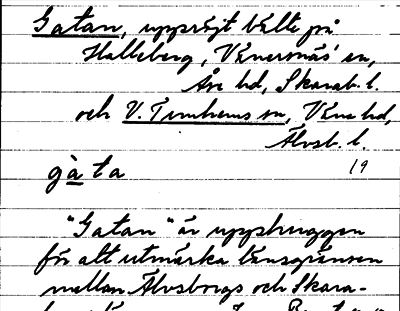 Gatan, upprögt bälte på
Halleberg, Vänersnäs' sn,
Åse hd, Skarab. l.
och V. Tunhems sn, Väne hd,
Älvsb. l.
gàta 19
"Gatan" är upphuggen
för att utmärka länsgränsen
mellan Älvsborgs och Skara-